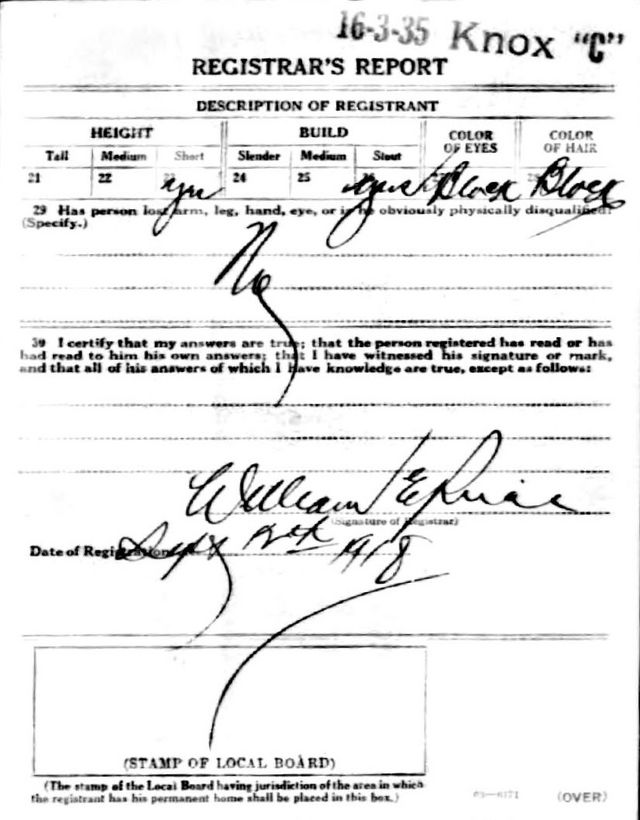 16-3-35 Knox "C"
REGISTRAR'S REPORT
DESCRIPTION OF REGISTRANT
HEIGHT BUILD COLOR OF EYES COLOR OF HAIR
Tall Medium Short Slender Medium Stout
21 22 24 25
yes yes Black Black
29 Has person lost arm, leg, hand, eye, or is he obviously physically disqualified?
(Specify.)
No
30 I certify that my answers are true; that the person registered has read or has
had read to him his own answers; that I have witnessed his signature or mark,
and that all of his answers of which I have knowledge are true, except as follows:
William E
(Signature of Registrar)
Date of Registration Sept 12th 1918
(STAMP OF LOCAL BOARD)
(The stamp of the Local Board having jurisdiction of the area in which
the registrant has his permanent home shall be placed in this box.)
03—6171 (OVER)